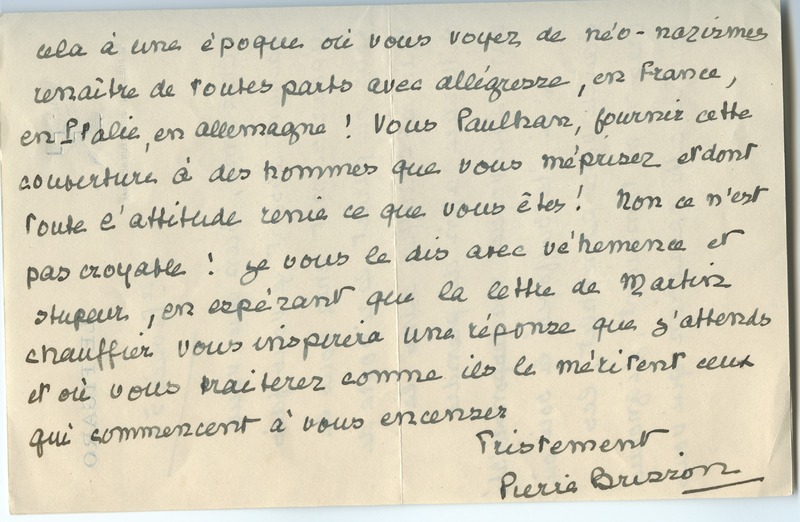 cela à une époque où vous voyez de néo-nazismes
renaître de toutes parts avec allégresse, en France,
en Italie, en allemagne ! Vous Paulhan, fournir cette
couverture à des hommes que vous méprisez et dont
toute l'attitude renie ce que vous êtes ! Non ce n'est
pas croyable ! je vous le dis avec véhémence et
stupeur, en espérant que la lettre de Martin
chauffier vous inspirera une réponse que j'attends
et où vous traiterez comme ils le méritent ceux
qui commencent à vous encenser
Tristement
Pierre Brisson